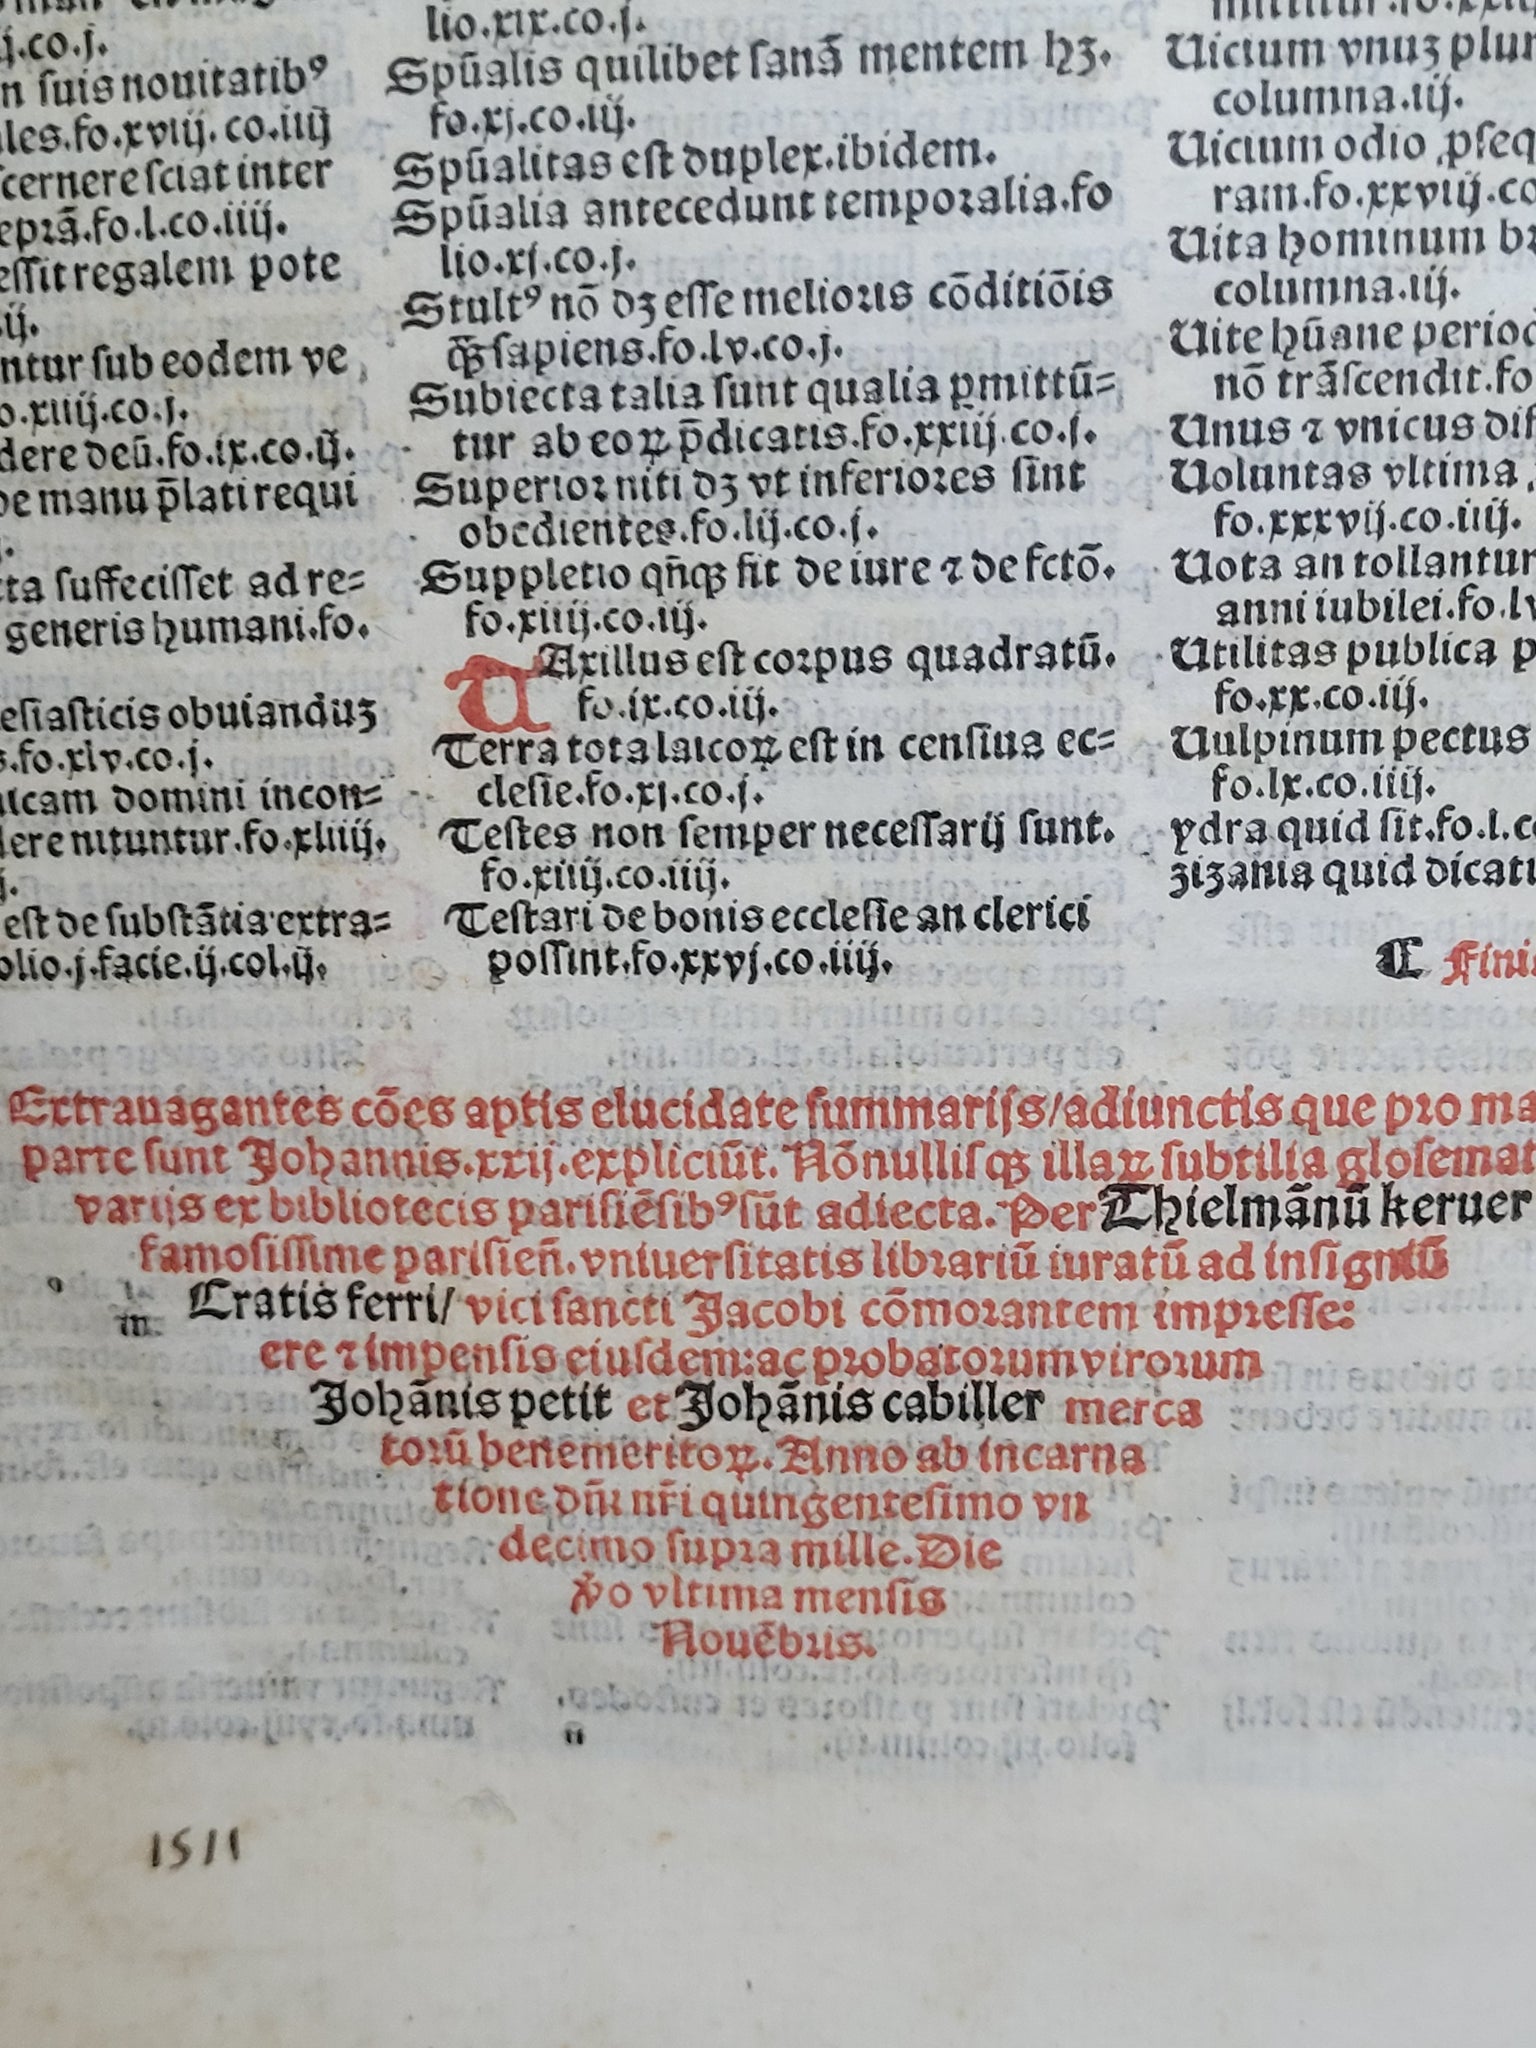 ij.co.j.
n suis nouitatibꝰ
les.fo.xviij.co.iiij
scernere sciat inter
eprã.fo.l.co.iiij.
essit regalem pote
ij.
ntur sub eodem ve
o.xiiij.co.j.
dere deũ.fo.ix.co.ij.
de manu p̃lati requi
cta suffecisset ad re=
generis humani.fo.
esiasticis obuianduꝫ
s.fo.xlv.co.j.
uicam domini incon=
dere nituntur.fo.xliiij.
j.
est de substãtia extra=
olio.j.facie.ij.col.ij.
lio.xix.co.j.
Spũalis quilibet sanã mentem hꝫ.
fo.xj.co.iij.
Spũalitas est duplex.ibidem.
Spũalia antecedunt temporalia.fo
lio.xj.co.j.
Stultꝰ nõ dꝫ esse melioris cõditiõis
q̃ꝫ sapiens.fo.lv.co.j.
Subiecta talia sunt qualia ꝑmittũ=
tur ab eoꝝ p̃dicatis.fo.xxiij.co.j.
Superior niti dꝫ vt inferiores sint
obedientes.fo.lij.co.j.
Suppletio qñqꝫ fit de iure ⁊ de fctõ.
fo.xiiij.co.iij.
TAxillus est corpus quadratũ.
fo.ix.co.iij.
Terra tota laicoꝝ est in censiua ec=
clesie.fo.xj.co.j.
Testes non semper necessarij sunt.
fo.xiiij.co.iiij.
Testari de bonis ecclesie an clerici
possint.fo.xxvj.co.iiij.
Uicium vnuꝫ plur
columna.iij.
Uicium odio ꝓseq
ram.fo.xxviij.co
Uita hominum br
columna.iij.
Uite hũane period
nõ trãscendit.fo
Unus ⁊ vnicus dif
Uoluntas vltima
fo.xxxvij.co.iiij.
Uota an tollantur
anni iubilei.fo.lv
Utilitas publica p
fo.xx.co.iij.
Uulpinum pectus
fo.lx.co.iiij.
ydra quid sit.fo.l.co
zizania quid dicat
⸿ Finis
Extrauagantes cões aptis elucidate summarijs/adiunctis que pro ma
parte sunt Johannis.xxij.expliciũt. Nõnullisqꝫ illaꝝ subtilia glosemat
varijs ex bibliotecis parisiẽsibꝰ sũt adiecta. Per Thielmãnũ keruer
famosissime parisieñ. vniuersitatis librariũ iuratũ ad insigniũ
Cratis ferri/ vici sancti Jacobi cõmorantem impresse:
ere ⁊ impensis eiusdem: ac probatorum virorum
Johãnis petit et Johãnis cabiller merca
torũ benemeritoꝝ. Anno ab incarna
tione dñi nr̃i quingentesimo vn
decimo supra mille. Die
ṽo vltima mensis
Nouẽbris.
1511